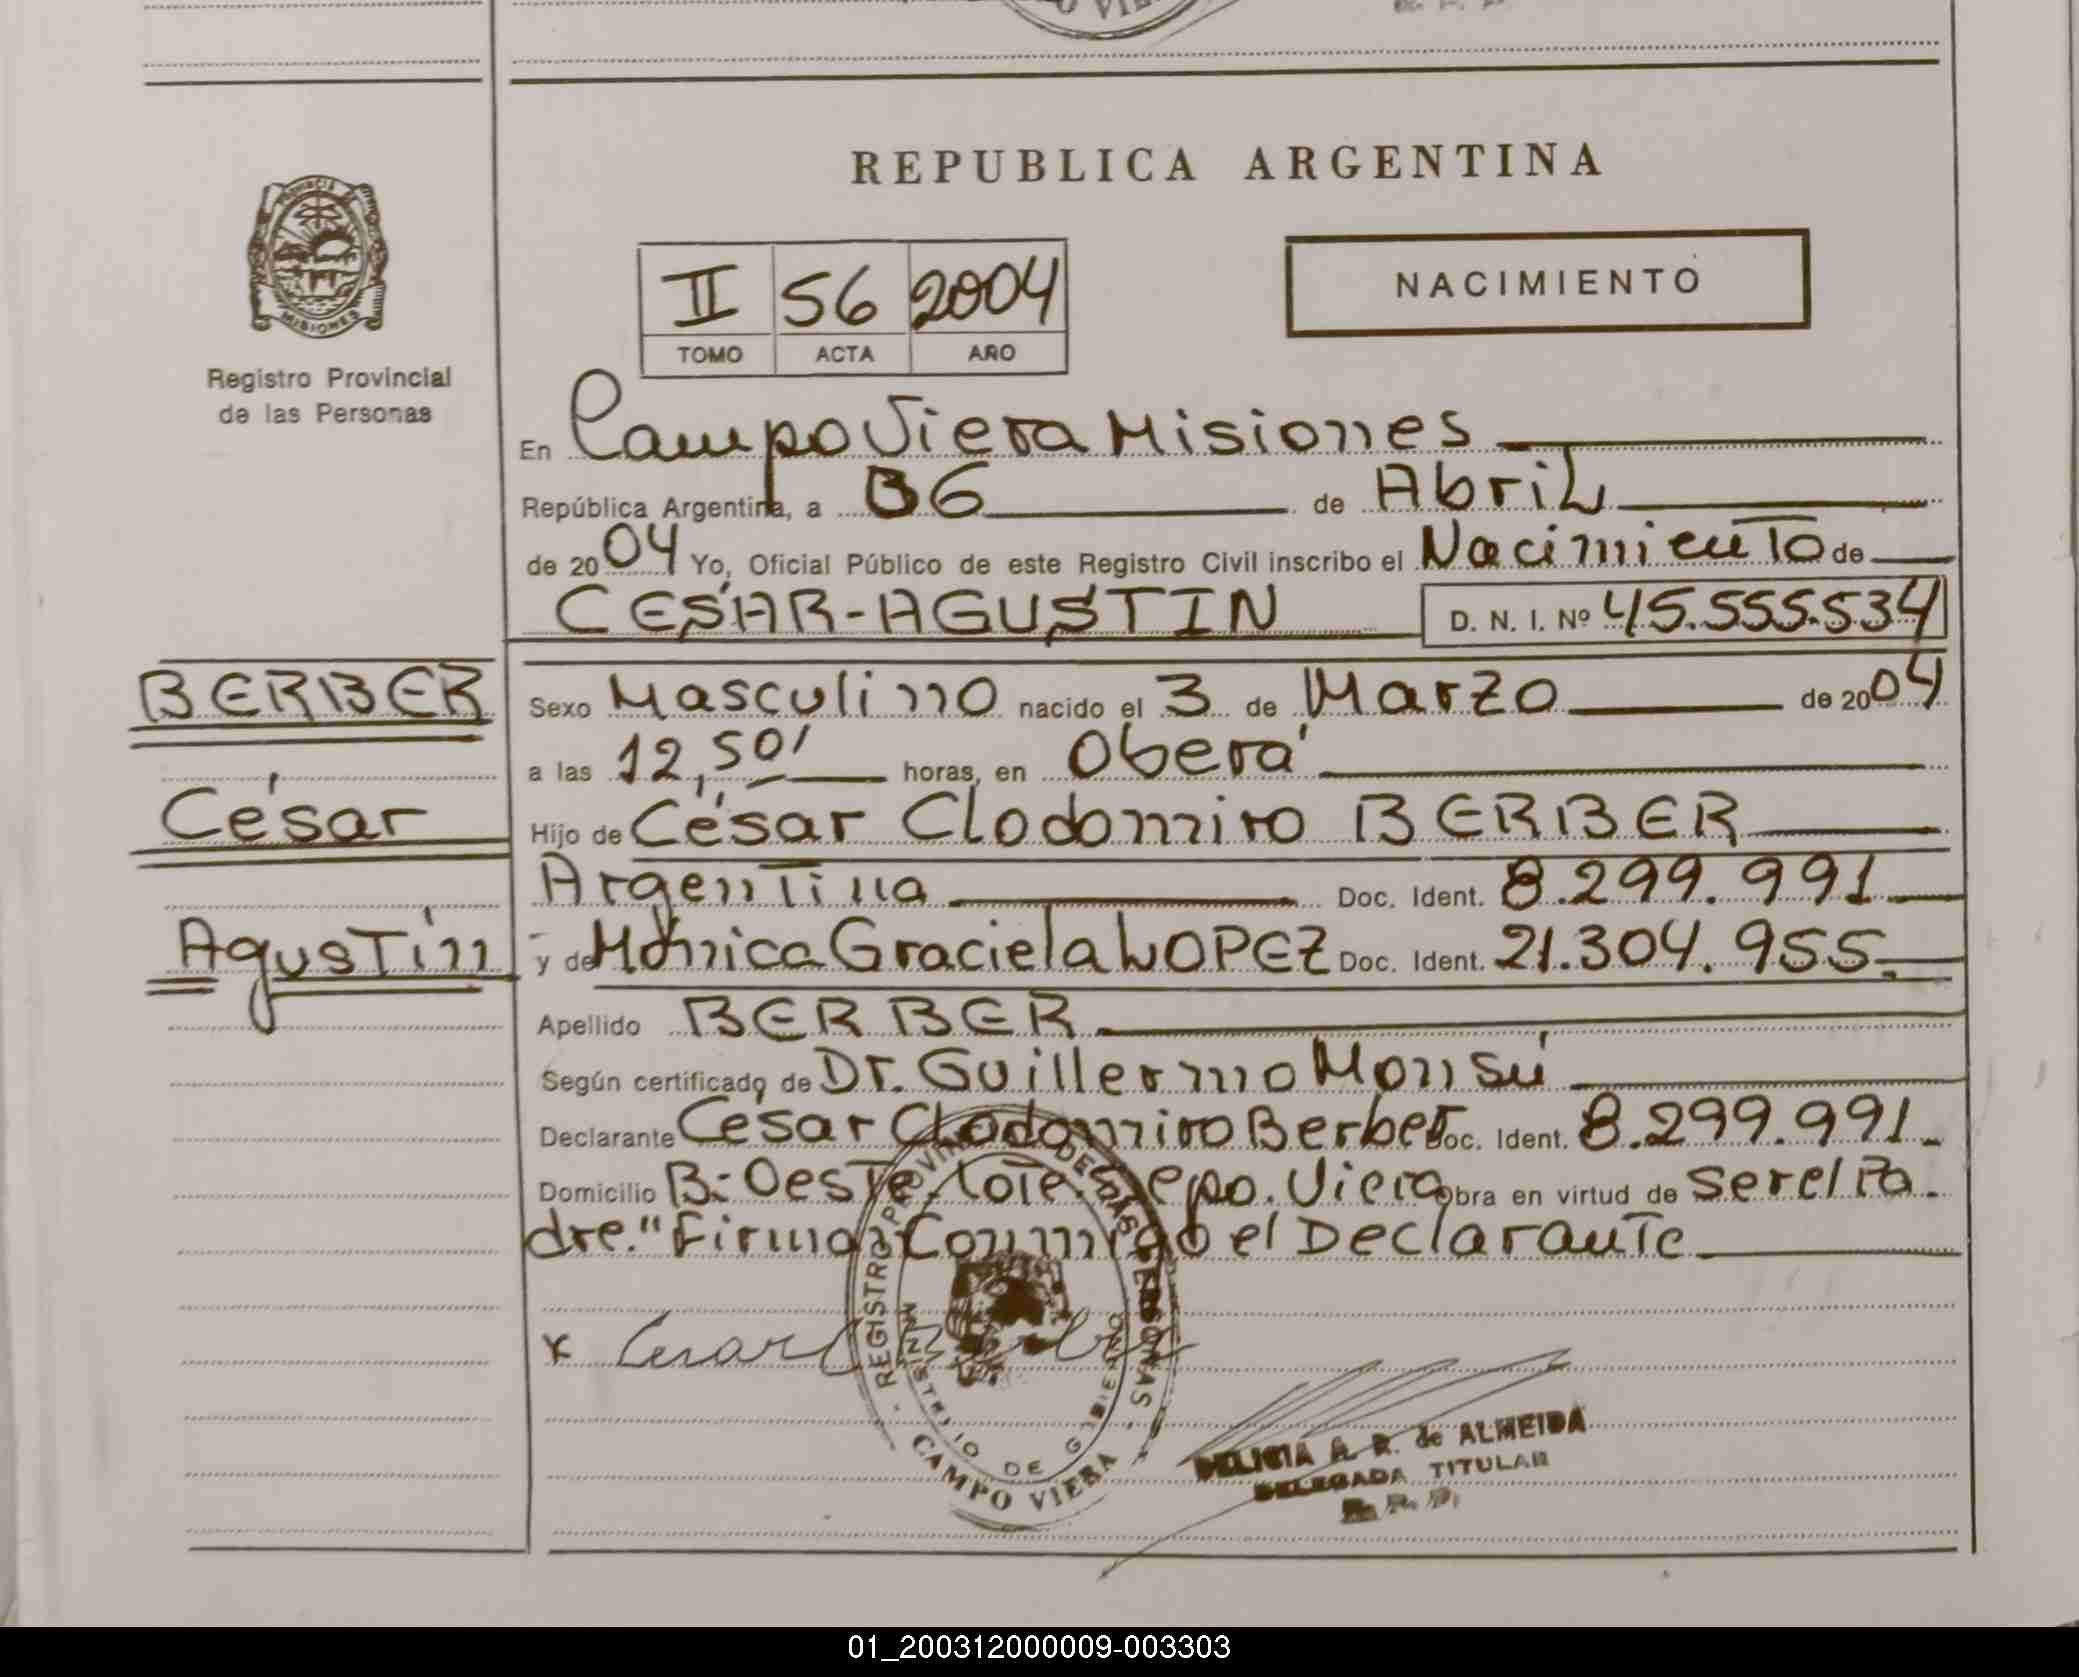 REPUBLICA ARGENTINA
NACIMIENTO
II 56 2004
TOMO ACTA AÑO
PROVINCIA DE
MISIONES
Registro Provincial
de las Personas
En Campo Viera Misiones
República Argentina, a 06 de Abril
de 2004 Yo, Oficial Público de este Registro Civil inscribo el Nacimiento de
CESAR-AGUSTIN D. N. I. Nº 45.555.534
BERBER
César
Agustín
Sexo Masculino nacido el 3 de Marzo de 2004
a las 12,50' horas, en Oberá
Hijo de César Clodomiro BERBER
Argentina Doc. Ident. 8.299.991
y de Mónica Graciela LOPEZ Doc. Ident. 21.304.955.
Apellido BERBER
Según certificado de Dr. Guillermo Monsú
Declarante César Clodomiro Berber Doc. Ident. 8.299.991.
Domicilio B: Oeste. Lote. Cpo. Viera Obra en virtud de ser el Pa.
dre." Firman Conmigo el Declarante
x Cesar
REGISTRO PROVINCIAL DE LAS PERSONAS
MINISTERIO DE GOBIERNO
CAMPO VIERA
DELICIA A. R. de ALMEIDA
DELEGADA TITULAR
R. P. P.
01_200312000009-003303